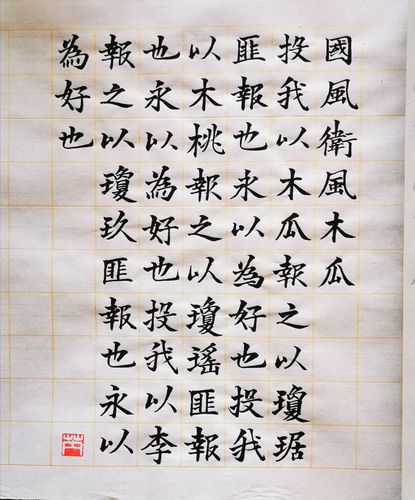 國風衛風木瓜
投我以木瓜報之以瓊琚
匪報也永以為好也投我
以木桃報之以瓊瑤匪報
也永以為好也投我以李
報之以瓊玖匪報也永以
為好也